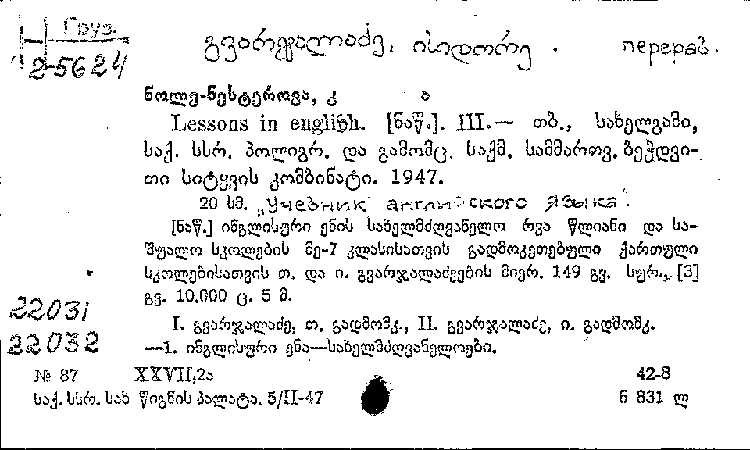 Груз.
2-5624
გვარჯალაძე, ისიდორე . перераб.
ნოლე-ნესტეროვა, კ ა
Lessons in english. [ნაწ.]. III.— თბ., სახელგამი,
საქ. სსრ. პოლიგრ. და გამომც. საქმ. სამმართვ. ბეჭდვი-
თი სიტყვის კომბინატი. 1947.
20 სმ. „Учебник английского языка".
[ნაწ.] ინგლისური ენის სახელმძღვანელო რვა წლიანი და სა-
შუალო სკოლების მე-7 კლასისათვის გადმოკეთებული ქართული
სკოლებისათვის თ. და ი. გვარჯალაძეების მიერ. 149 გვ. სურ., [3]
გვ. 10.000 ც. 5 მ.
22031
22032
I. გვარჯალაძე, თ. გადმომკ., II. გვარჯალაძე, ი. გადმომკ.
—1. ინგლისური ენა—სახელმძღვანელოები.
№ 87 XXVII,2ა 42-8
საქ. სსრ. სახ წიგნის პალატა. 5/II-47 6 831 ლ